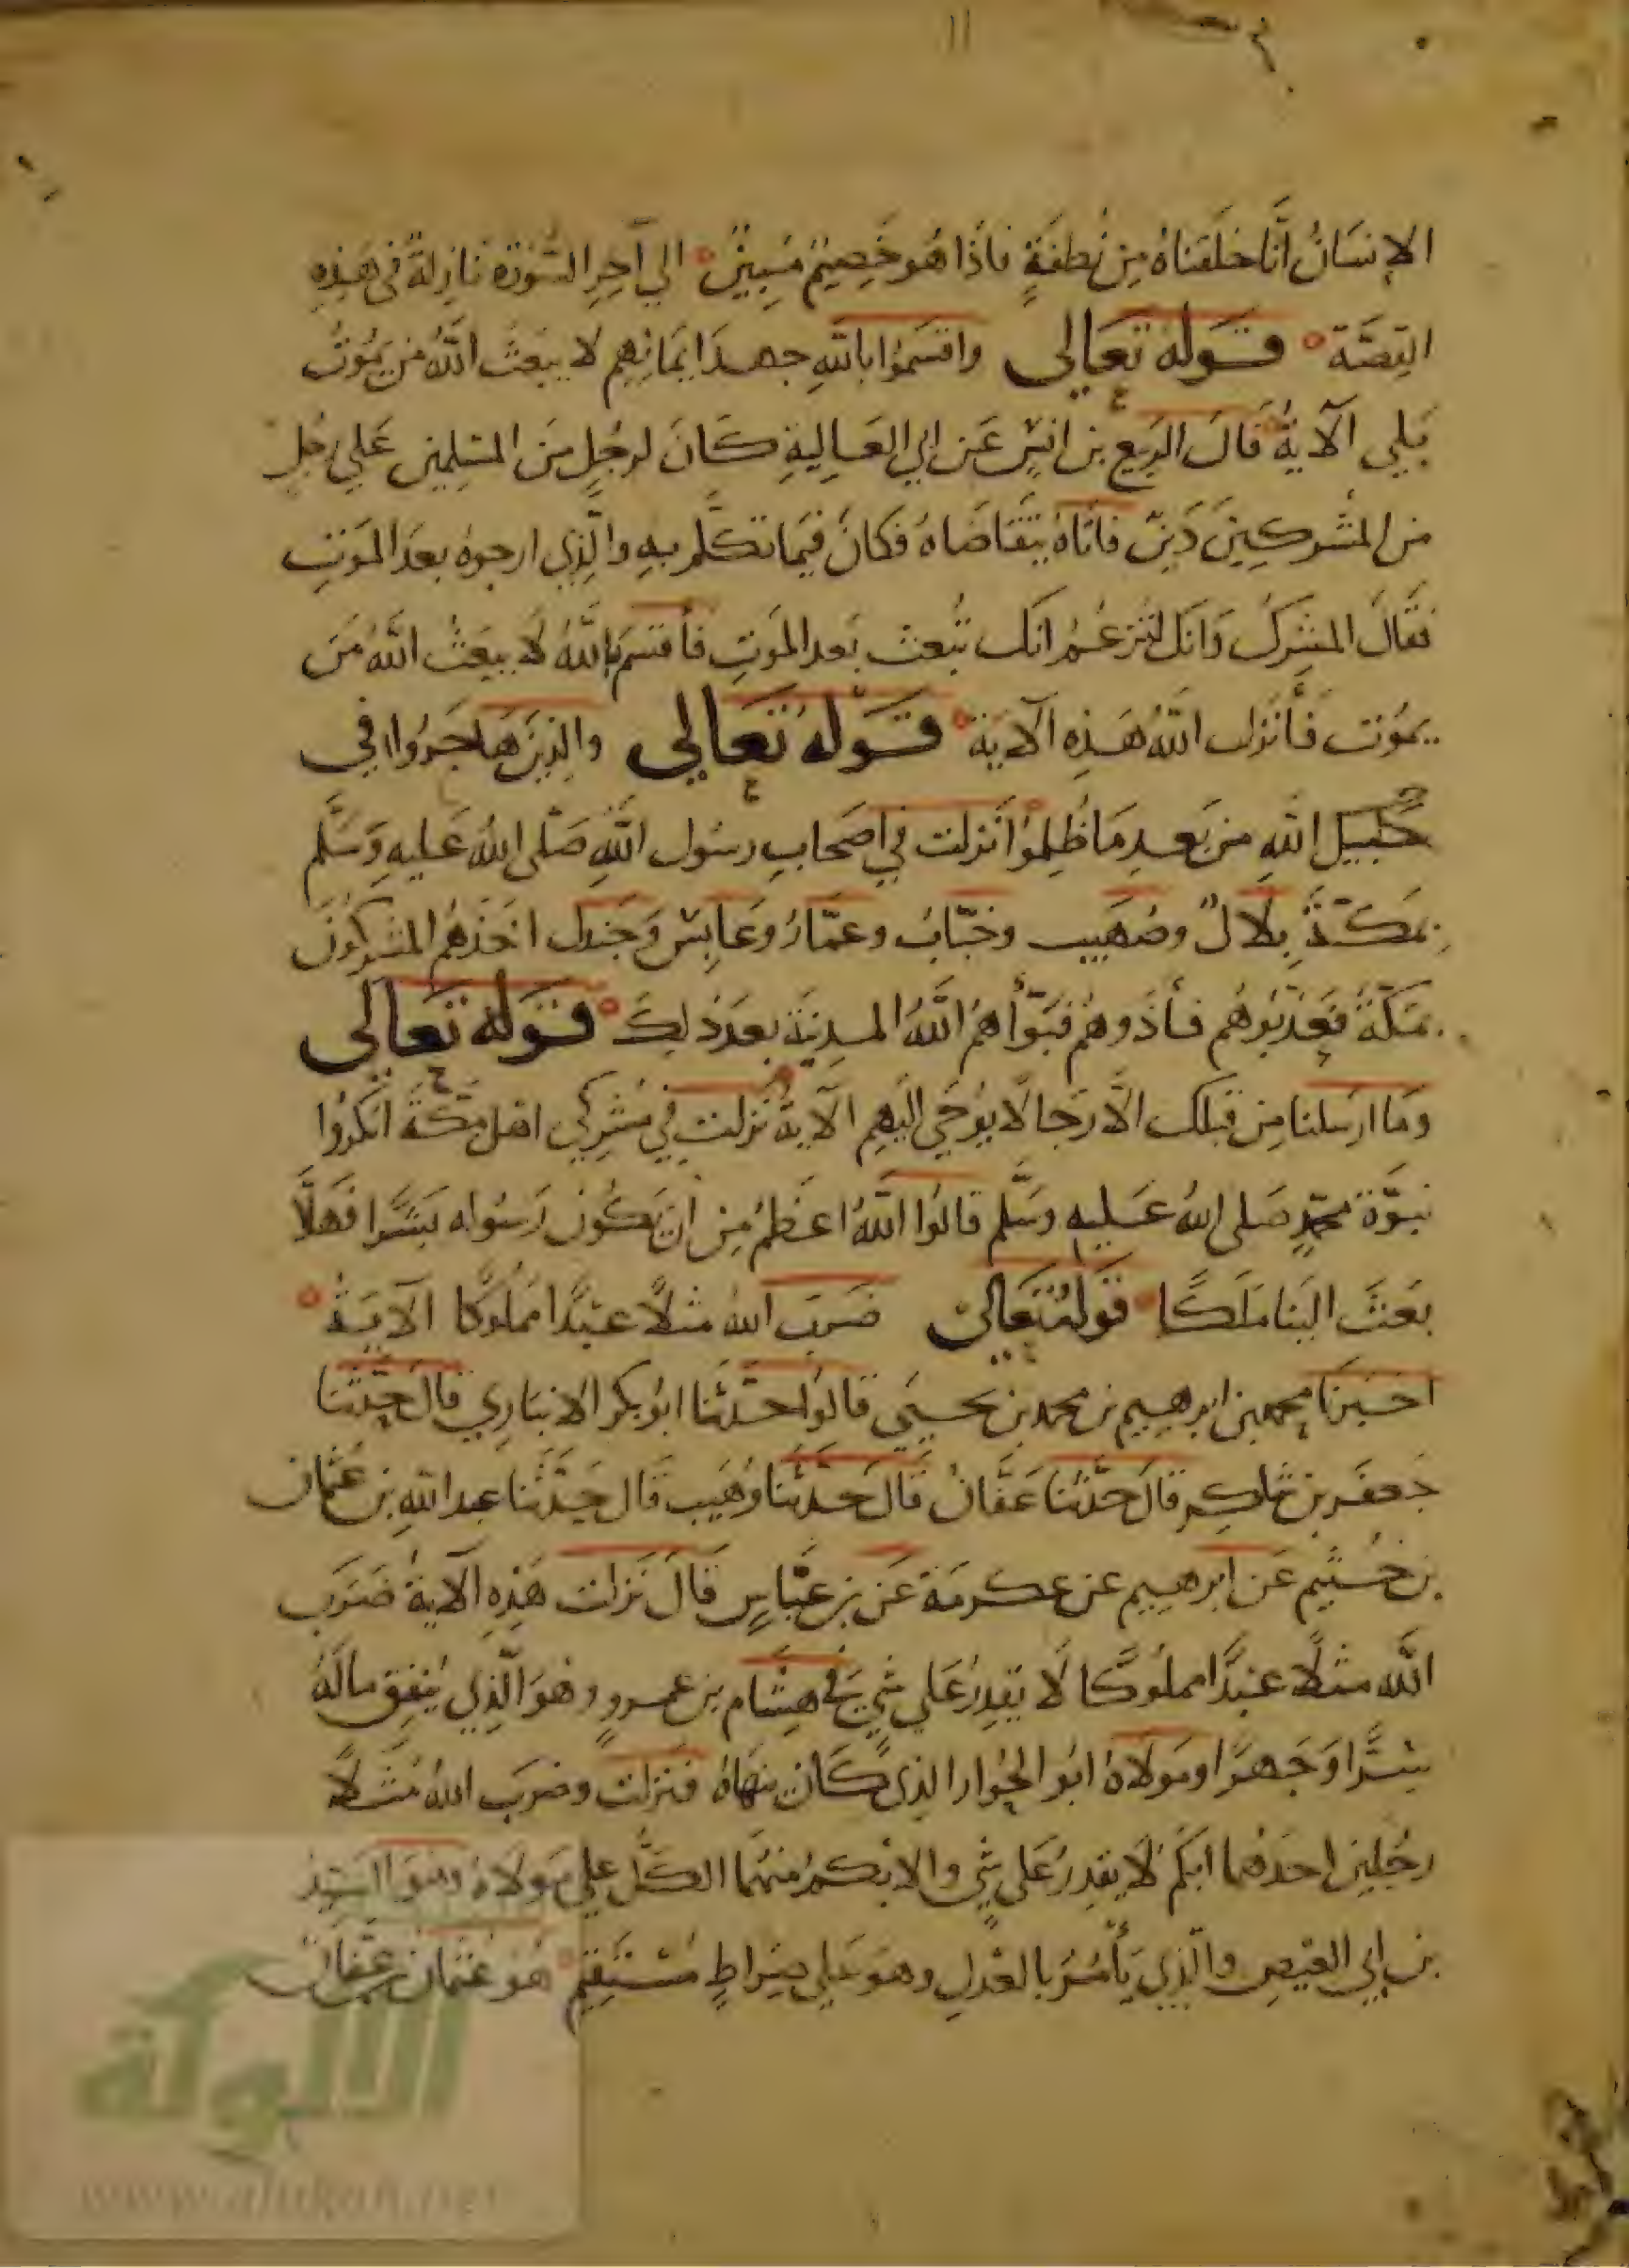 الإنسَانُ أنَّا خَلَقنَاهُ مِن نُطفَةٍ فاذَا هُو خَصِيمٌ مُبِينٌ إلي آخِرِ السُّورَة نازِلةٌ في هَذِهِ
القِصَّة قَوله تعَالى واقسَمُوا باللهِ جهدَ أيمَانِهِم لا يبَعَثُ اللهُ مَن يمُوتُ
بَلي الآية قالَ الرَبيع بن انسٍ عَن ابي العَالِيةِ كَانَ لرجُلٍ منَ المسلِمين عَلي رجُلٍ
من المشركِينَ دَينٌ فاتَاهُ يتقَاضَاهُ فكانَ فيمَا تكلَّم بهِ والَّذِي ارجوهُ بعدَ المَوتِ
فقالَ المشرِكُ وَانكَ لتزعُم انَك تُبعث بَعد المَوتِ فأقسَم باللهُ لا يبعَثُ اللهُ مَن
يمُوت فأنزل اللهُ هَذِه الآيَة قَوله تَعَالى والذِينَ هَاجَرُوا في
سَبيل اللهِ من بَعدِ مَا ظُلِمُوا نَزلت في اصحَابِ رسُول اللهِ صَلى اللهُ عَليهِ وَسَلَّم
بمَكّةَ بِلالٌ وصُهَيب وخبَّابُ وعمَّارُ وعَابِسٌ وَجَندل اخَذهمُ المشركُونَ
بمَكّةَ فَعَذبُوهُم فأذَوهُم فبَوَّأهمُ اللهُ المدينةَ بعدَ ذلِكَ قَوله تعَالى
وَمَا ارسَلنا مِن قبَلك الَّا رَجَالًا يوُحَي اليَهِم الآيةُ نَزلت في مُشرِكي اهل مكّةَ انكَرُوا
نبوَّة محمّدٍ صَلى اللهُ عَليهِ وسَلَّم قالوا اللهُ اعَظَمُ مِن أن يَكُون رَسُوله بَشَرًا فَهَلَّا
بَعَثَ الينَا مَلَكًا قَولهُ تَعَالى ضَرَبَ اللهُ مَثلاً عَبْدًا مَملُوكًا الآيَة
اخَبَرنَا محمد بن ابرهِيم بن محمد بن يحَيَي قالوا حدَّثنَا ابُو بكر الانبَارِي قالَ حدَّثنَا
جَعفَر بن شاكِر قالَ حَدَّثنَا عَفَّانُ قَالَ حَدَّثنَا وُهَيب قَالَ حَدَّثنَا عبد اللهِ بن عُثمان
بن خُثَيم عَن ابرهِيم عن عكرمَة عَن بن عبَّاسٍ قَالَ نَزلت هَذِهِ الآيةُ ضَرَب
اللّه مثلًا عَبدًا مملُوكًا لَا يَقدِرُ عَلي شَيءٍ في هِشام بن عمرو وهُوَ الَّذِي يُنفِق مالَهُ
سِرًّا وَجَهرًا ومَولاهُ ابُو الجُوار الذِي كَانَ ينهَاهُ فنزلت وضرَب اللهُ مَثلًا
رجُلين احَدهُما ابكَمُ لَا يقدِرُ عَلى شَيٍ والابْكمُ منهُما الكَلُّ علي مَولاهُ وهُوَ اسَيد
بن ابي العيصِ والذِي يَأمُرُ بالعَدلِ وهوَ عَلي صِراطٍ مُستَقِيمٍ هُو عُثمان بن عفَّان
الألوكة
www.alukah.net